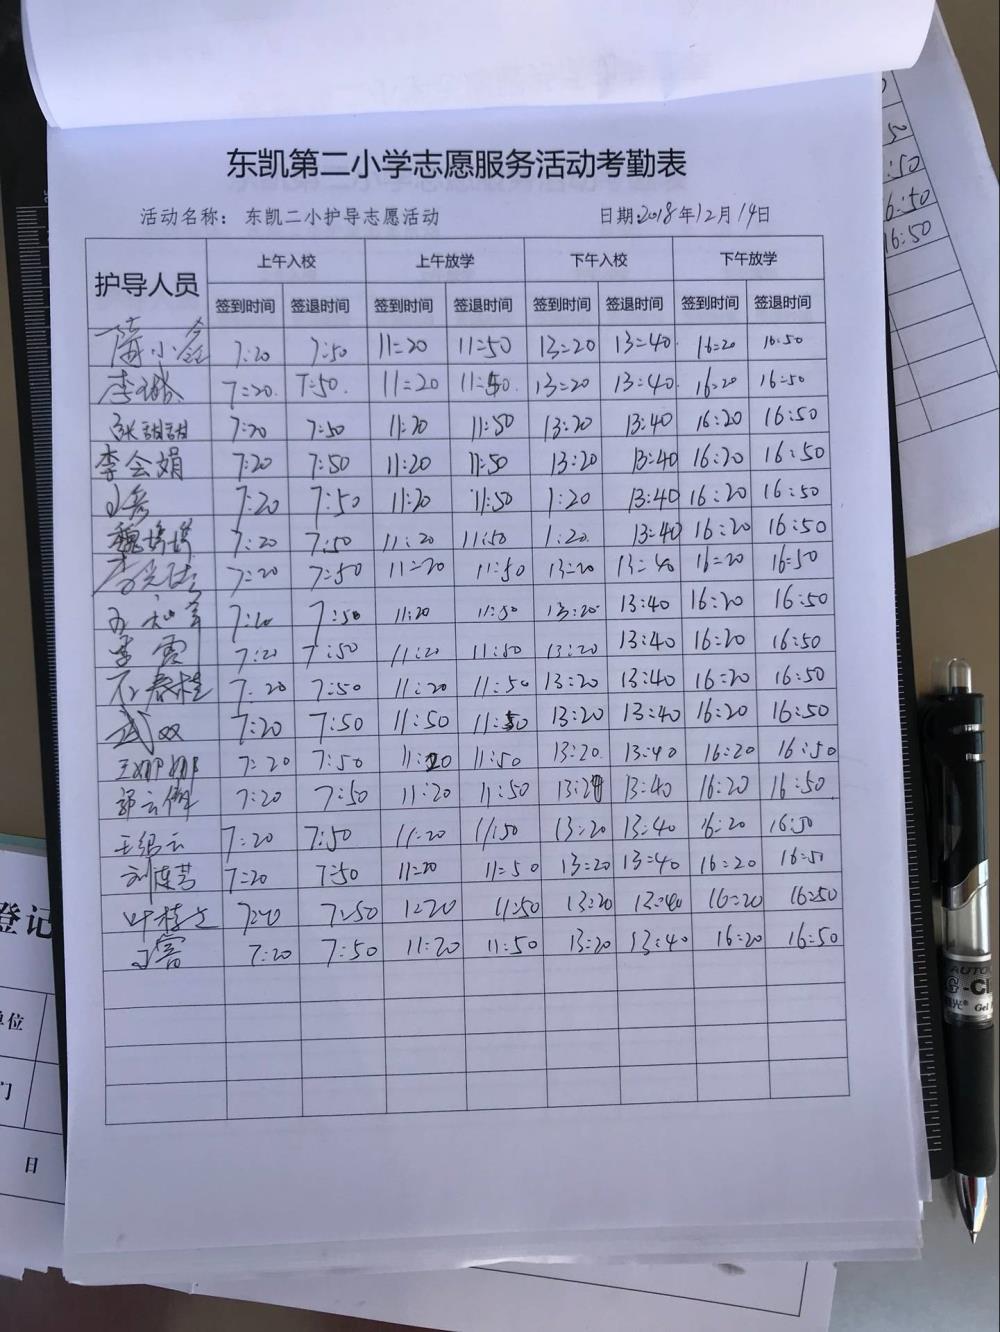 东凯第二小学志愿服务活动考勤表
活动名称： 东凯二小护导志愿活动 日期:2018年12月14日
护导人员 上午入校 上午放学 下午入校 下午放学
签到时间 签退时间 签到时间 签退时间 签到时间 签退时间 签到时间 签退时间
7:20 7:50 11:20 11:50 13:20 13:40 16:20 16:50
7:20 7:50 11:20 11:50 13:20 13:40 16:20 16:50
张甜甜 7:20 7:50 11:20 11:50 13:20 13:40 16:20 16:50
李会娟 7:20 7:50 11:20 11:50 13:20 13:40 16:20 16:50
7:20 7:50 11:20 11:50 1:20 13:40 16:20 16:50
魏婷婷 7:20 7:50 11:20 11:50 1:20 13:40 16:20 16:50
7:20 7:50 11:20 11:50 13:20 13:40 16:20 16:50
7:20 7:50 11:20 11:50 13:20 13:40 16:20 16:50
李霞 7:20 7:50 11:20 11:50 13:20 13:40 16:20 16:50
7:20 7:50 11:20 11:50 13:20 13:40 16:20 16:50
武双 7:20 7:50 11:50 11:50 13:20 13:40 16:20 16:50
王娜娜 7:20 7:50 11:20 11:50 13:20 13:40 16:20 16:50
7:20 7:50 11:20 11:50 13:20 13:40 16:20 16:50
7:20 7:50 11:20 11:50 13:20 13:40 16:20 16:50
7:20 7:50 11:20 11:50 13:20 13:40 16:20 16:50
叶桂文 7:20 7:50 1:20 11:50 13:20 13:40 16:20 16:50
7:20 7:50 11:20 11:50 13:20 13:40 16:20 16:50
:50
6:50
16:50
登记
单位
门
日